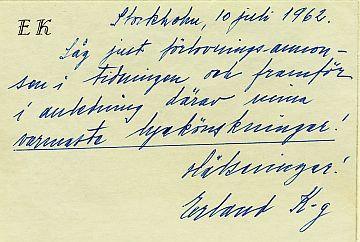 EK
Stockholm, 10 juli 1962.
Såg just förlovningsannon-
sen i tidningen och framför
i anledning därav mina
varmaste lyckönskningar!
Hälsningar!
Erland K-g